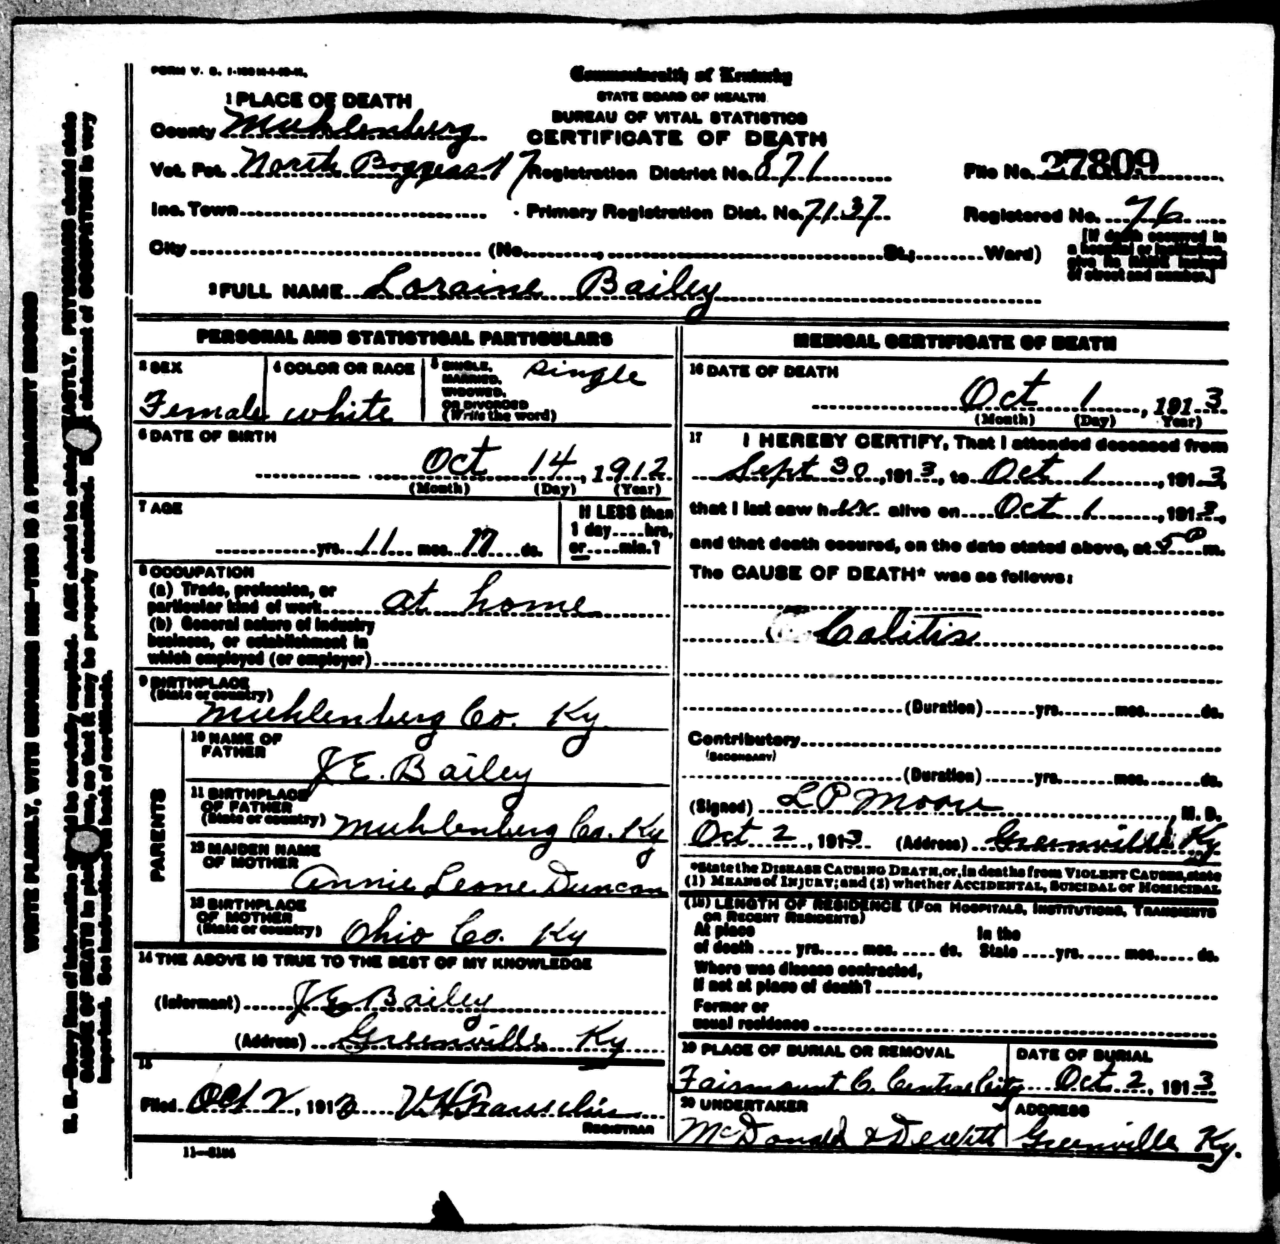 FORM V. S.
Commonwealth of Kentucky
STATE BOARD OF HEALTH
BUREAU OF VITAL STATISTICS
CERTIFICATE OF DEATH
1 PLACE OF DEATH
County Muhlenberg
Vot. Pct. North Boggess 17 Registration District No. 871 File No. 27809
Inc. Town Primary Registration Dist. No. 7137 Registered No. 76
City (No. , St.; Ward)
[If death occurred in
a hospital or institution,
give its NAME instead
of street and number.]
2 FULL NAME Loraine Bailey
PERSONAL AND STATISTICAL PARTICULARS
3 SEX
Female
4 COLOR OR RACE
white
5 SINGLE,
MARRIED,
WIDOWED,
OR DIVORCED
(Write the word)
single
6 DATE OF BIRTH
Oct 14, 1912
(Month) (Day) (Year)
7 AGE
yrs. 11 mos. 17 ds.
If LESS than
1 day hrs,
or min.?
8 OCCUPATION
(a) Trade, profession, or
particular kind of work at home
(b) General nature of industry
business, or establishment in
which employed (or employer)
9 BIRTHPLACE
(State or country)
Muhlenberg Co. Ky.
PARENTS
10 NAME OF
FATHER
J.E. Bailey
11 BIRTHPLACE
OF FATHER
(State or country) Muhlenberg Co. Ky
12 MAIDEN NAME
OF MOTHER
Annie Leone Duncan
13 BIRTHPLACE
OF MOTHER
(State or country) Ohio Co. Ky
14 THE ABOVE IS TRUE TO THE BEST OF MY KNOWLEDGE
(Informant) J.E. Bailey
(Address) Greenville Ky
15
Filed Oct 2, 1913
REGISTRAR
11—3184
MEDICAL CERTIFICATE OF DEATH
16 DATE OF DEATH
Oct 1, 1913
(Month) (Day) (Year)
17 I HEREBY CERTIFY, That I attended deceased from
Sept 30, 1913, to Oct 1, 1913,
that I last saw her alive on Oct 1, 1913,
and that death occured, on the date stated above, at 5 P m.
The CAUSE OF DEATH* was as follows:
Colitis
(Duration) yrs. mos. ds.
Contributory
(SECONDARY)
(Duration) yrs. mos. ds.
(Signed) L P Moore, M. D.
Oct 2, 1913 (Address) Greenville Ky
*State the DISEASE CAUSING DEATH, or, in deaths from VIOLENT CAUSES, state
(1) MEANS of INJURY; and (2) whether ACCIDENTAL, SUICIDAL or HOMICIDAL
(18) LENGTH OF RESIDENCE (FOR HOSPITALS, INSTITUTIONS, TRANSIENTS
OR RECENT RESIDENTS)
At place In the
of death yrs. mos. ds. State yrs. mos. ds.
Where was disease contracted,
If not at place of death?
Former or
usual residence
19 PLACE OF BURIAL OR REMOVAL
Fairmount C. Central City
DATE OF BURIAL
Oct 2, 1913
20 UNDERTAKER
McDonald & Dewitt
ADDRESS
Greenville Ky.
WRITE PLAINLY, WITH UNFADING INK—THIS IS A PERMANENT RECORD
N. B.—Every item of information should be carefully supplied. AGE should be stated EXACTLY. PHYSICIANS should state
CAUSE OF DEATH in plain terms, so that it may be properly classified. statement of OCCUPATION is very
important. See instructions on back of certificate.